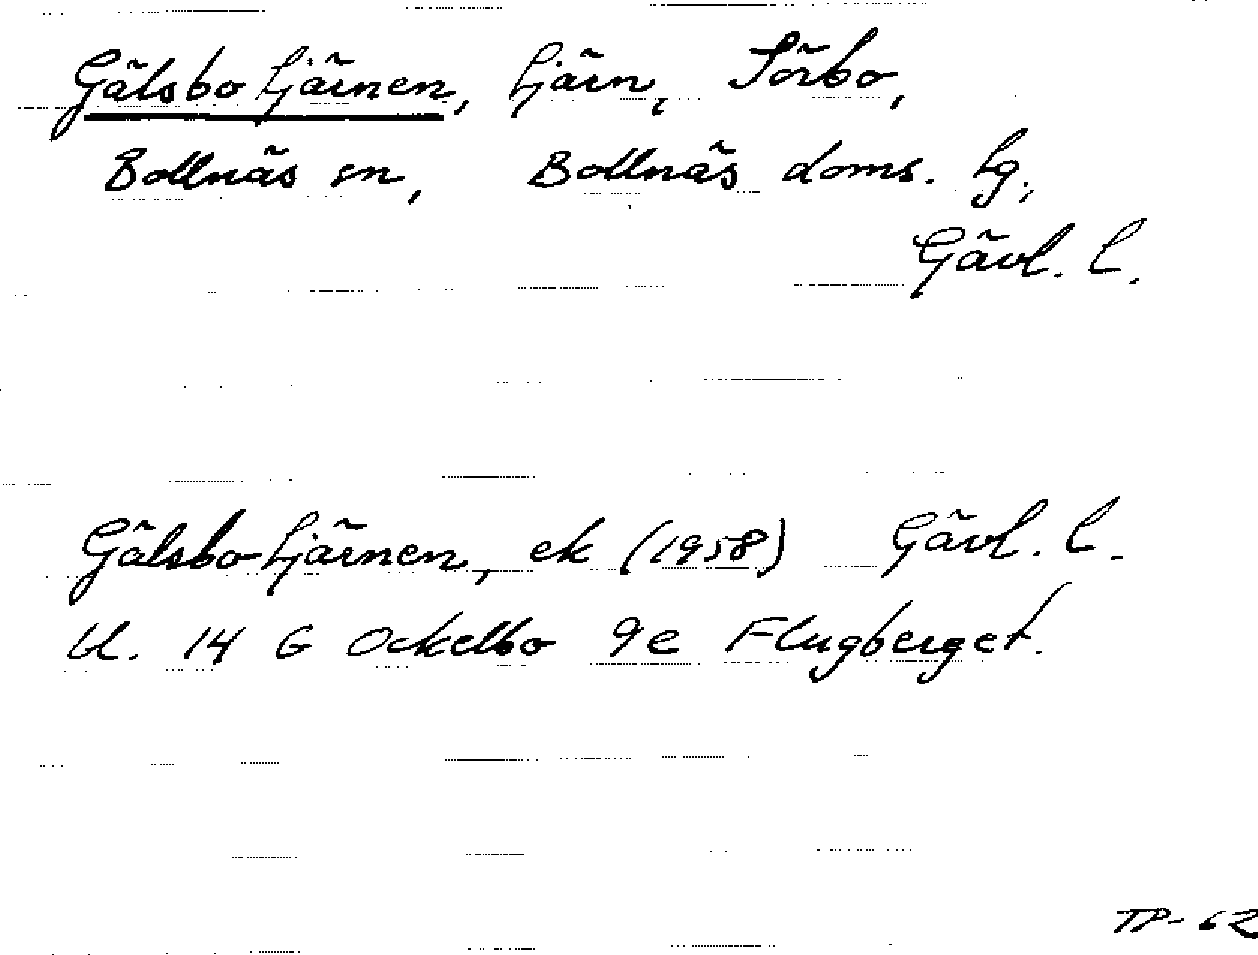 Gälsbo tjärnen, tjärn, Sörbo,
Bollnäs sn, Bollnäs doms. tg,
Gävl. l.
Gälsbo-tjärnen, ek (1958) Gävl. l.
bl. 14 G Ockelbo 9e Flugberget.
TP-62